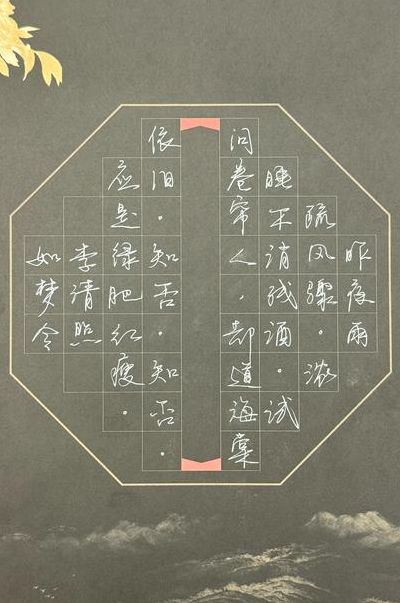 昨夜雨
疏风骤。浓
睡不消残酒。试
问卷帘人，却道海棠
依旧。知否。知否。
应是绿肥红瘦。
李清照
如梦令